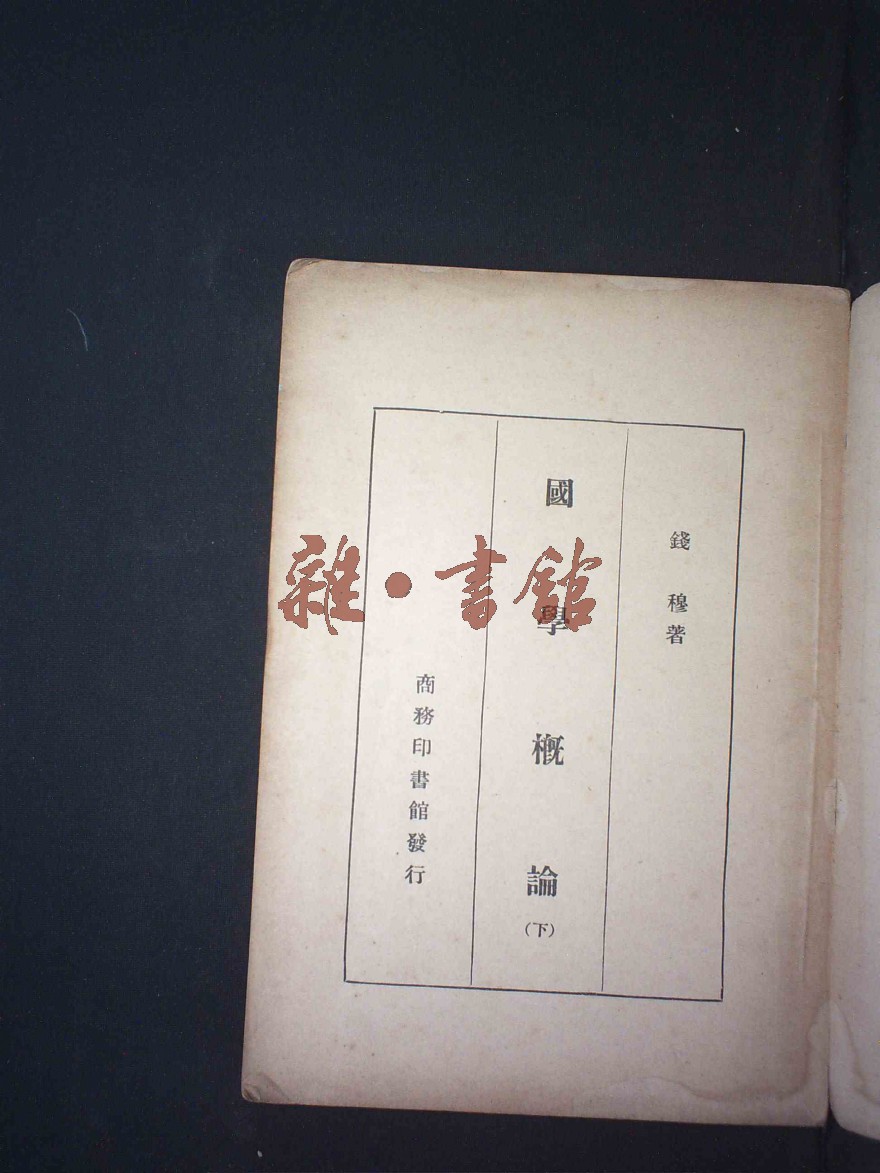 錢穆著
國學概論
(下)
商務印書館發行
雜·書館